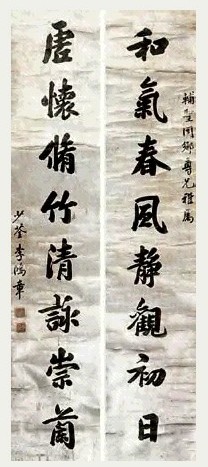 輔同鄉尊兄雅屬
和氣春風靜觀初日
虛懷脩竹清詠崇蘭
少荃李鴻章